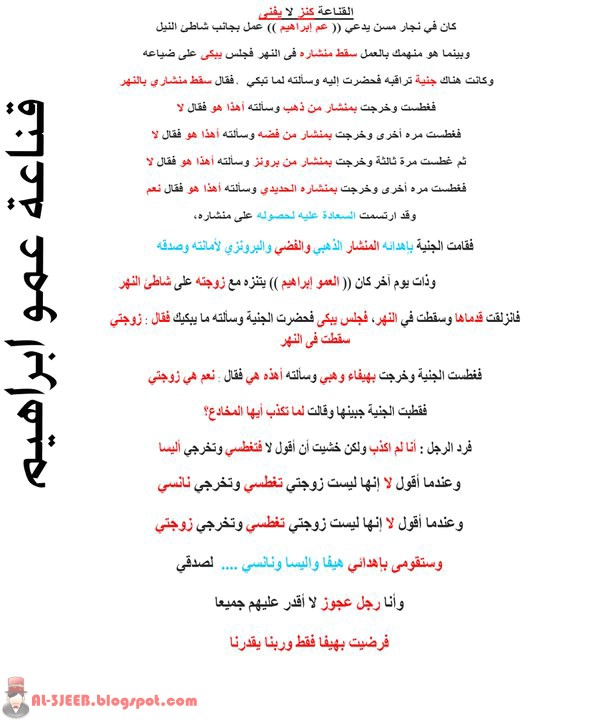 القناعة كنز لا يفنى
كان في نجار مسن يدعي (( عم إبراهيم )) عمل بجانب شاطئ النيل
وبينما هو منهمك بالعمل سقط منشاره فى النهر فجلس يبكى على ضياعه
وكانت هناك جنية تراقبه فحضرت إليه وسألته لما تبكي . فقال سقط منشاري بالنهر
فغطست وخرجت بمنشار من ذهب وسألته أهذا هو فقال لا
فغطست مره أخرى وخرجت بمنشار من فضه وسألته أهذا هو فقال لا
ثم غطست مرة ثالثة وخرجت بمنشار من برونز وسألته أهذا هو فقال لا
فغطست مره أخرى وخرجت بمنشاره الحديدي وسألته أهذا هو فقال نعم
وقد ارتسمت السعادة عليه لحصوله على منشاره،
فقامت الجنية بإهدائه المنشار الذهبي والفضي والبرونزي لأمانته وصدقه
وذات يوم أخر كان (( العمو إبراهيم )) يتنزه مع زوجته على شاطئ النهر
فانزلقت قدماها وسقطت في النهر، فجلس يبكى فحضرت الجنية وسألته ما يبكيك فقال : زوجتي
سقطت فى النهر
فغطست الجنية وخرجت بهيفاء وهبي وسألته أهذه هي فقال : نعم هي زوجتي
فقطبت الجنية جبينها وقالت لما تكذب أيها المخادع؟
فرد الرجل : أنا لم اكذب ولكن خشيت أن أقول لا فتغطسي وتخرجي أليسا
وعندما أقول لا إنها ليست زوجتي تغطسي وتخرجي نانسي
وعندما أقول لا إنها ليست زوجتي تغطسي وتخرجي زوجتي
وستقومى بإهدائي هيفا واليسا ونانسي .... لصدقي
وأنا رجل عجوز لا أقدر عليهم جميعا
فرضيت بهيفا فقط وربنا يقدرنا
قناعة عمو ابراهيم
AL-3JEEB.blogspot.com